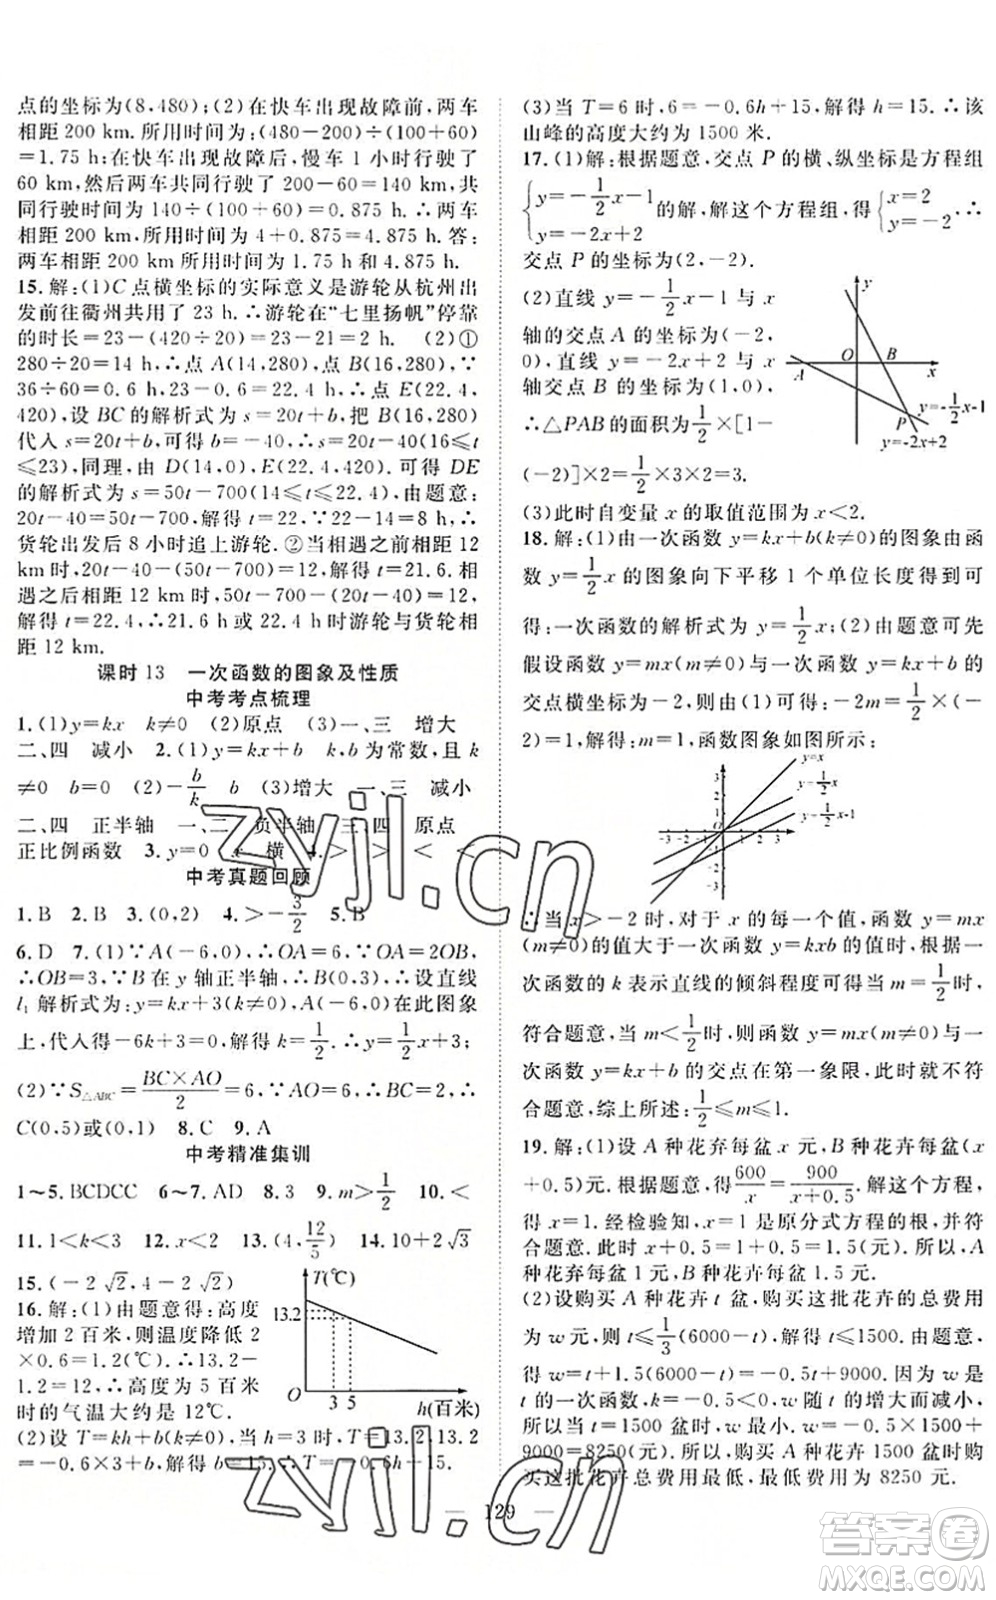 点的坐标为(8,480);(2)在快车出现故障前,两车
相距 200 km. 所用时间为:(480-200)÷(100+60)
=1.75 h;在快车出现故障后,慢车 1 小时行驶了
60 km,然后两车共同行驶了 200-60=140 km,共
同行驶时间为 140÷(100+60)=0.875 h. ∴两车
相距 200 km,所用时间为 4+0.875=4.875 h. 答:
两车相距 200 km 所用时间为 1.75 h 和 4.875 h.
15. 解:(1)C 点横坐标的实际意义是游轮从杭州出
发前往衢州共用了 23 h. ∴游轮在“七里扬帆”停靠
的时长=23-(420÷20)=23-21=2 h. (2)①
280÷20=14 h,∴点 A(14,280),点 B(16,280),∵
36÷60=0.6 h,23-0.6=22.4,∴点 E(22.4,
420),设 BC 的解析式为 s=20t+b,把 B(16,280)
代入 s=20t+b,可得 b=-40,∴s=20t-40(16≤t
≤23),同理,由 D(14,0),E(22.4,420),可得 DE
的解析式为 s=50t-700(14≤t≤22.4),由题意:
20t-40=50t-700,解得 t=22,∵22-14=8 h,∴
货轮出发后 8 小时追上游轮. ②当相遇之前相距 12
km 时,20t-40-(50t-700)=12,解得 t=21.6. 相
遇之后相距 12 km 时,50t-700-(20t-40)=12,
解得 t=22.4,∴21.6 h 或 22.4 h 时游轮与货轮相
距 12 km.
课时 13 一次函数的图象及性质
中考考点梳理
1. (1)y=kx k≠0 (2)原点 (3)一、三 增大
二、四 减小 2. (1)y=kx+b k,b 为常数,且 k
≠0 b=0 (2)-b/k b (3)增大 一、三 减小
二、四 正半轴 一、二 负半轴 三、四 原点
正比例函数 3. y=0 x 横 4. > > < <
中考真题回顾
1. B 2. B 3. (0,2) 4. >-3/2 5. B
6. D 7. (1)∵A(-6,0),∴OA=6,∵OA=2OB,
∴OB=3,∵B 在 y 轴正半轴,∴B(0,3),∴设直线
l₁ 解析式为:y=kx+3(k≠0),A(-6,0)在此图象
上,代入得-6k+3=0,解得 k=1/2,∴y=1/2x+3;
(2)∵S△ABC=BC×AO/2=6,∵AO=6,∴BC=2,∴
C(0,5)或(0,1) 8. C 9. A
中考精准集训
1～5. BCDCC 6～7. AD 8. 3 9. m>1/2 10. <
11. 1<k<3 12. x<2 13. (4,12/5) 14. 10+2√3
15. (-2√2,4-2√2)
16. 解:(1)由题意得:高度
增加 2 百米,则温度降低 2
×0.6=1.2(℃). ∴13.2-
1.2=12,∴高度为 5 百米
时的气温大约是 12℃.
T(℃)
13.2
O
3 5
h(百米)
(2)设 T=kh+b(k≠0),当 h=3 时,T=13.2,13.2
=-0.6×3+b,解得 b=15,∴T=-0.6h+15.
(3)当 T=6 时,6=-0.6h+15,解得 h=15. ∴该
山峰的高度大约为 1500 米.
17. (1)解:根据题意,交点 P 的横、纵坐标是方程组
{y=-1/2x-1 y=-2x+2 的解,解这个方程组,得{x=2 y=-2,∴
交点 P 的坐标为(2,-2).
(2)直线 y=-1/2x-1 与 x
轴的交点 A 的坐标为(-2,
0),直线 y=-2x+2 与 x
轴交点 B 的坐标为(1,0),
∴△PAB 的面积为1/2×[1-
(-2)]×2=1/2×3×2=3.
y
O
B
A
x
P
y=-1/2x-1
y=-2x+2
(3)此时自变量 x 的取值范围为 x<2.
18. 解:(1)由一次函数 y=kx+b(k≠0)的图象由函
数 y=1/2x 的图象向下平移 1 个单位长度得到可
得:一次函数的解析式为 y=1/2x-1;(2)由题意可先
假设函数 y=mx(m≠0)与一次函数 y=kx+b 的
交点横坐标为-2,则由(1)可得:-2m=1/2×(-
2)-1,解得:m=1,函数图象如图所示:
y=x
y=1/2x
y=1/2x-1
3
2
1
O
-3 -2 -1
1 2 3
-1
-2
-3
∴当 x>-2 时,对于 x 的每一个值,函数 y=mx
(m≠0)的值大于一次函数 y=kxb 的值时,根据一
次函数的 k 表示直线的倾斜程度可得当 m=1/2时,
符合题意,当 m<1/2时,则函数 y=mx(m≠0)与一
次函数 y=kx+b 的交点在第一象限,此时就不符
合题意,综上所述:1/2≤m≤1.
19. 解:(1)设 A 种花弃每盆 x 元,B 种花卉每盆(x
+0.5)元. 根据题意,得600/x=900/x+0.5. 解这个方程,
得 x=1. 经检验知,x=1 是原分式方程的根,并符
合题意. 此时 x+0.5=1+0.5=1.5(元). 所以,A
种花弃每盆 1 元,B 种花卉每盆 1.5 元.
(2)设购买 A 种花卉 t 盆,购买这批花卉的总费用
为 w 元,则 t≤1/3(6000-t),解得 t≤1500. 由题意,
得 w=t+1.5(6000-t)=-0.5t+9000. 因为 w 是
t 的一次函数,k=-0.5<0,w 随 t 的增大而减小,
所以当 t=1500 盆时,w 最小. w=-0.5×1500+
9000=8250(元). 所以,购买 A 种花卉 1500 盆时购
买这批花卉总费用最低,最低费用为 8250 元.
129
zyjl.cn
zyjl.cn
答案圈
MXQE.COM